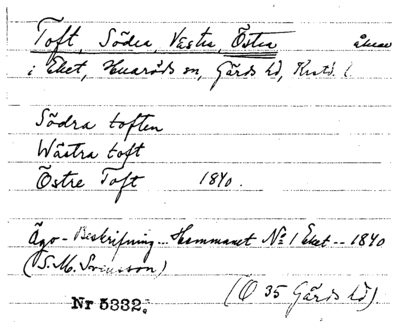 Toft, Södra, Västra, Östra åkrar
i Eket, Huaröds sn, Gärds hd, Krstds l.
Södra toften
Wästra toft
Östre Toft 1840.
Ägo-Beskrifning... Hemmanet No 1 Eket -- 1840
(S. M. Svensson)
(O 35 Gärds hd)
Nr 5332.